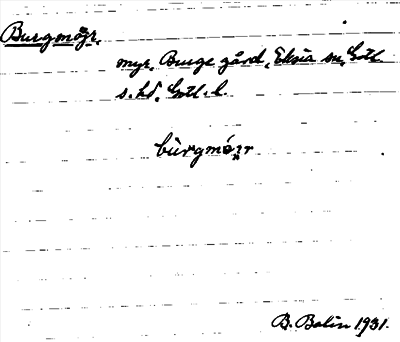 Burgmöjr.
myr, Burge gård, Eksta sn, Gotl.
s. hd, Gotl. l.
bùrgmö̀ir
B. Bolin 1931.